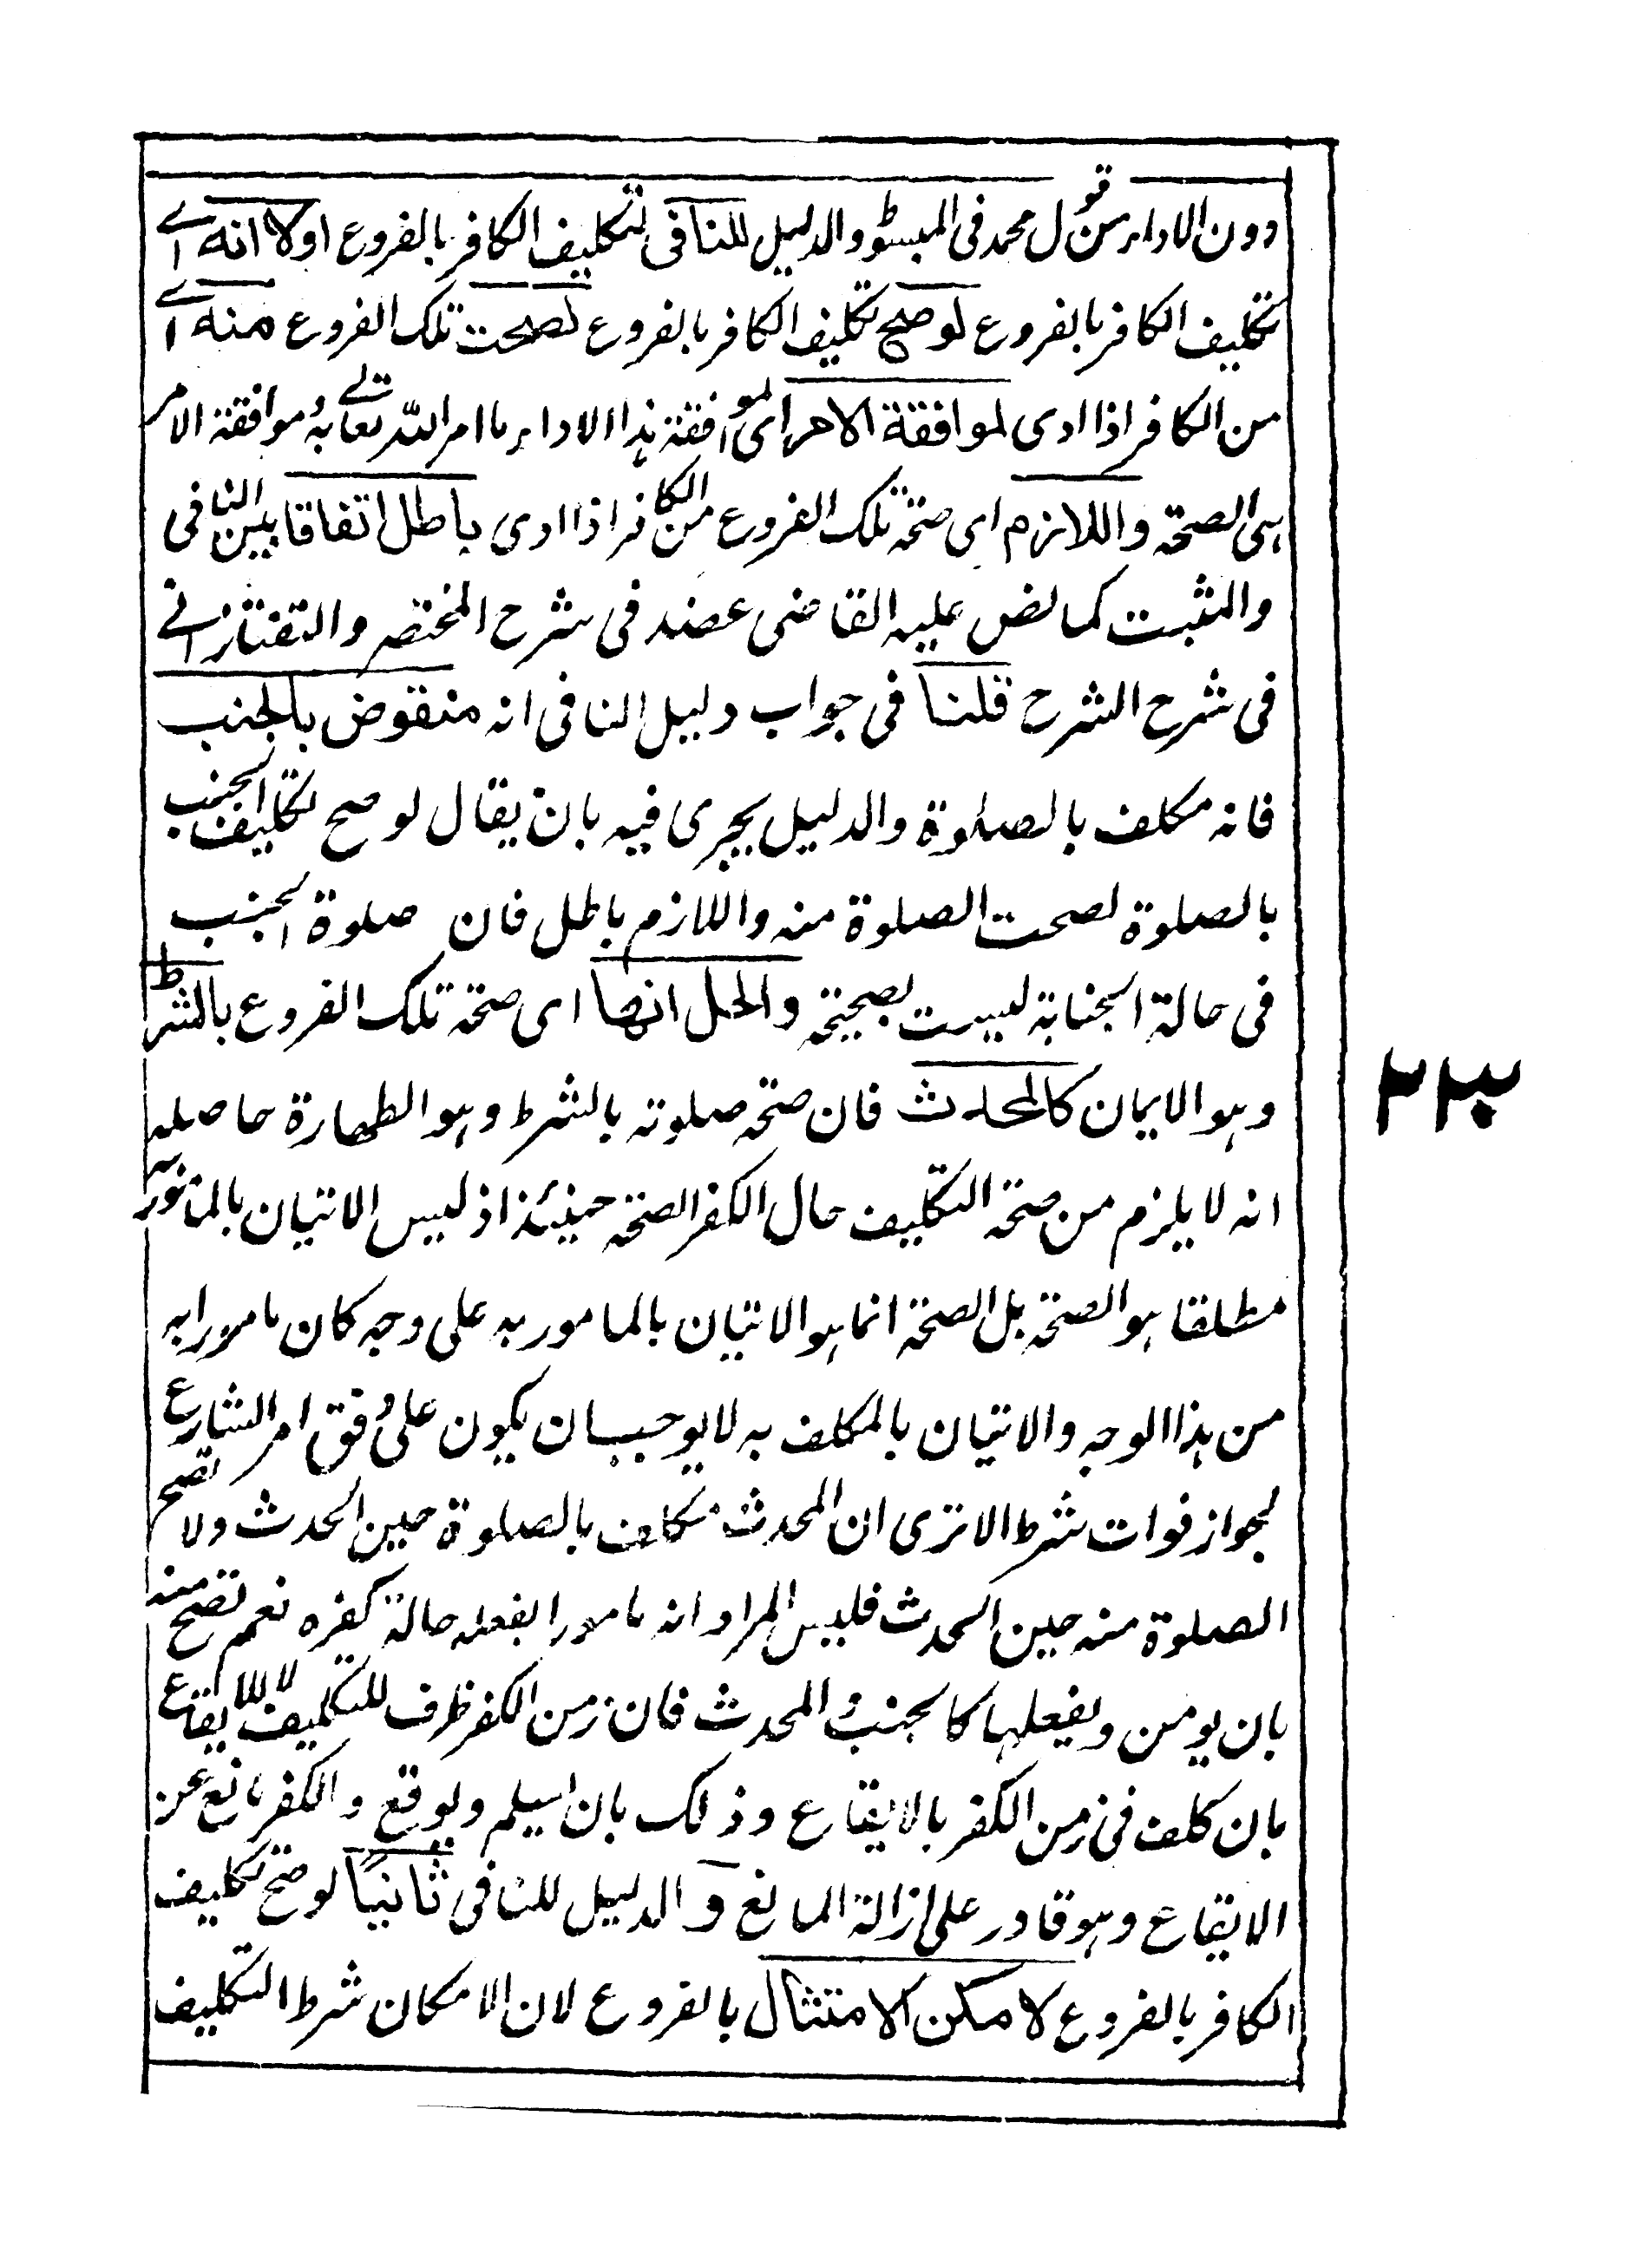 دون الاداء من قول محمد فى المبسوط والدليل للنافى لتكليف الكافر بالفروع اولا انه اے
تكليف الكافر بالفروع لو صح تكليف الكافر بالفروع لصحت تلك الفروع منه اے
من الكافر اذا ادى لموافقة الامر اى لموافقة هذا الاداء ما امر الله تعالے به وموافقة الامر
هى الصحة واللازم اى صحة تلك الفروع من الكافر اذا ادى باطل اتفاقا بين النافى
والمثبت كما نص عليه القاضى عضد فى شرح المختصر والتفتازانے
فى شرح الشرح قلنا فى جواب دليل النافى انه منقوض بالجنب
فانه مكلف بالصلوة والدليل يجرى فيه بان يقال لو صح تكليف الجنب
بالصلوة لصحت الصلوة منه واللازم باطل فان صلوة الجنب
فى حالة الجنابة ليست بصحيحة والحل انها اى صحة تلك الفروع بالشرط
وهو الايمان كالمحدث فان صحة صلوته بالشرط وهو الطهارة حاصله
انه لا يلزم من صحة التكليف حال الكفر الصحة حينئذ اذ ليس الاتيان بالمامور به
مطلقا هو الصحة بل الصحة انما هو الاتيان بالمامور به على وجه كان مامورا به
من هذا الوجه والاتيان بالمكلف به لا يوجب ان يكون على وفق امر الشارع
لجواز فوات شرط الا ترى ان المحدث مكلف بالصلوة حين الحدث ولا تصح
الصلوة منه حين الحدث فليس المراد انه مامورا بفعله حالة كفره نعم تصح منه
بان يومن ويفعلها كالجنب والمحدث فان زمن الكفر ظرف للتكليف لا للايقاع
بان كلف فى زمن الكفر بالايقاع وذلك بان يسلم ويوقع والكفر مانع عن
الايقاع وهو قادر على ازالة المانع و الدليل للنافى ثانيًا لو صح تكليف
الكافر بالفروع لامكن الامتثال بالفروع لان الامكان شرط التكليف